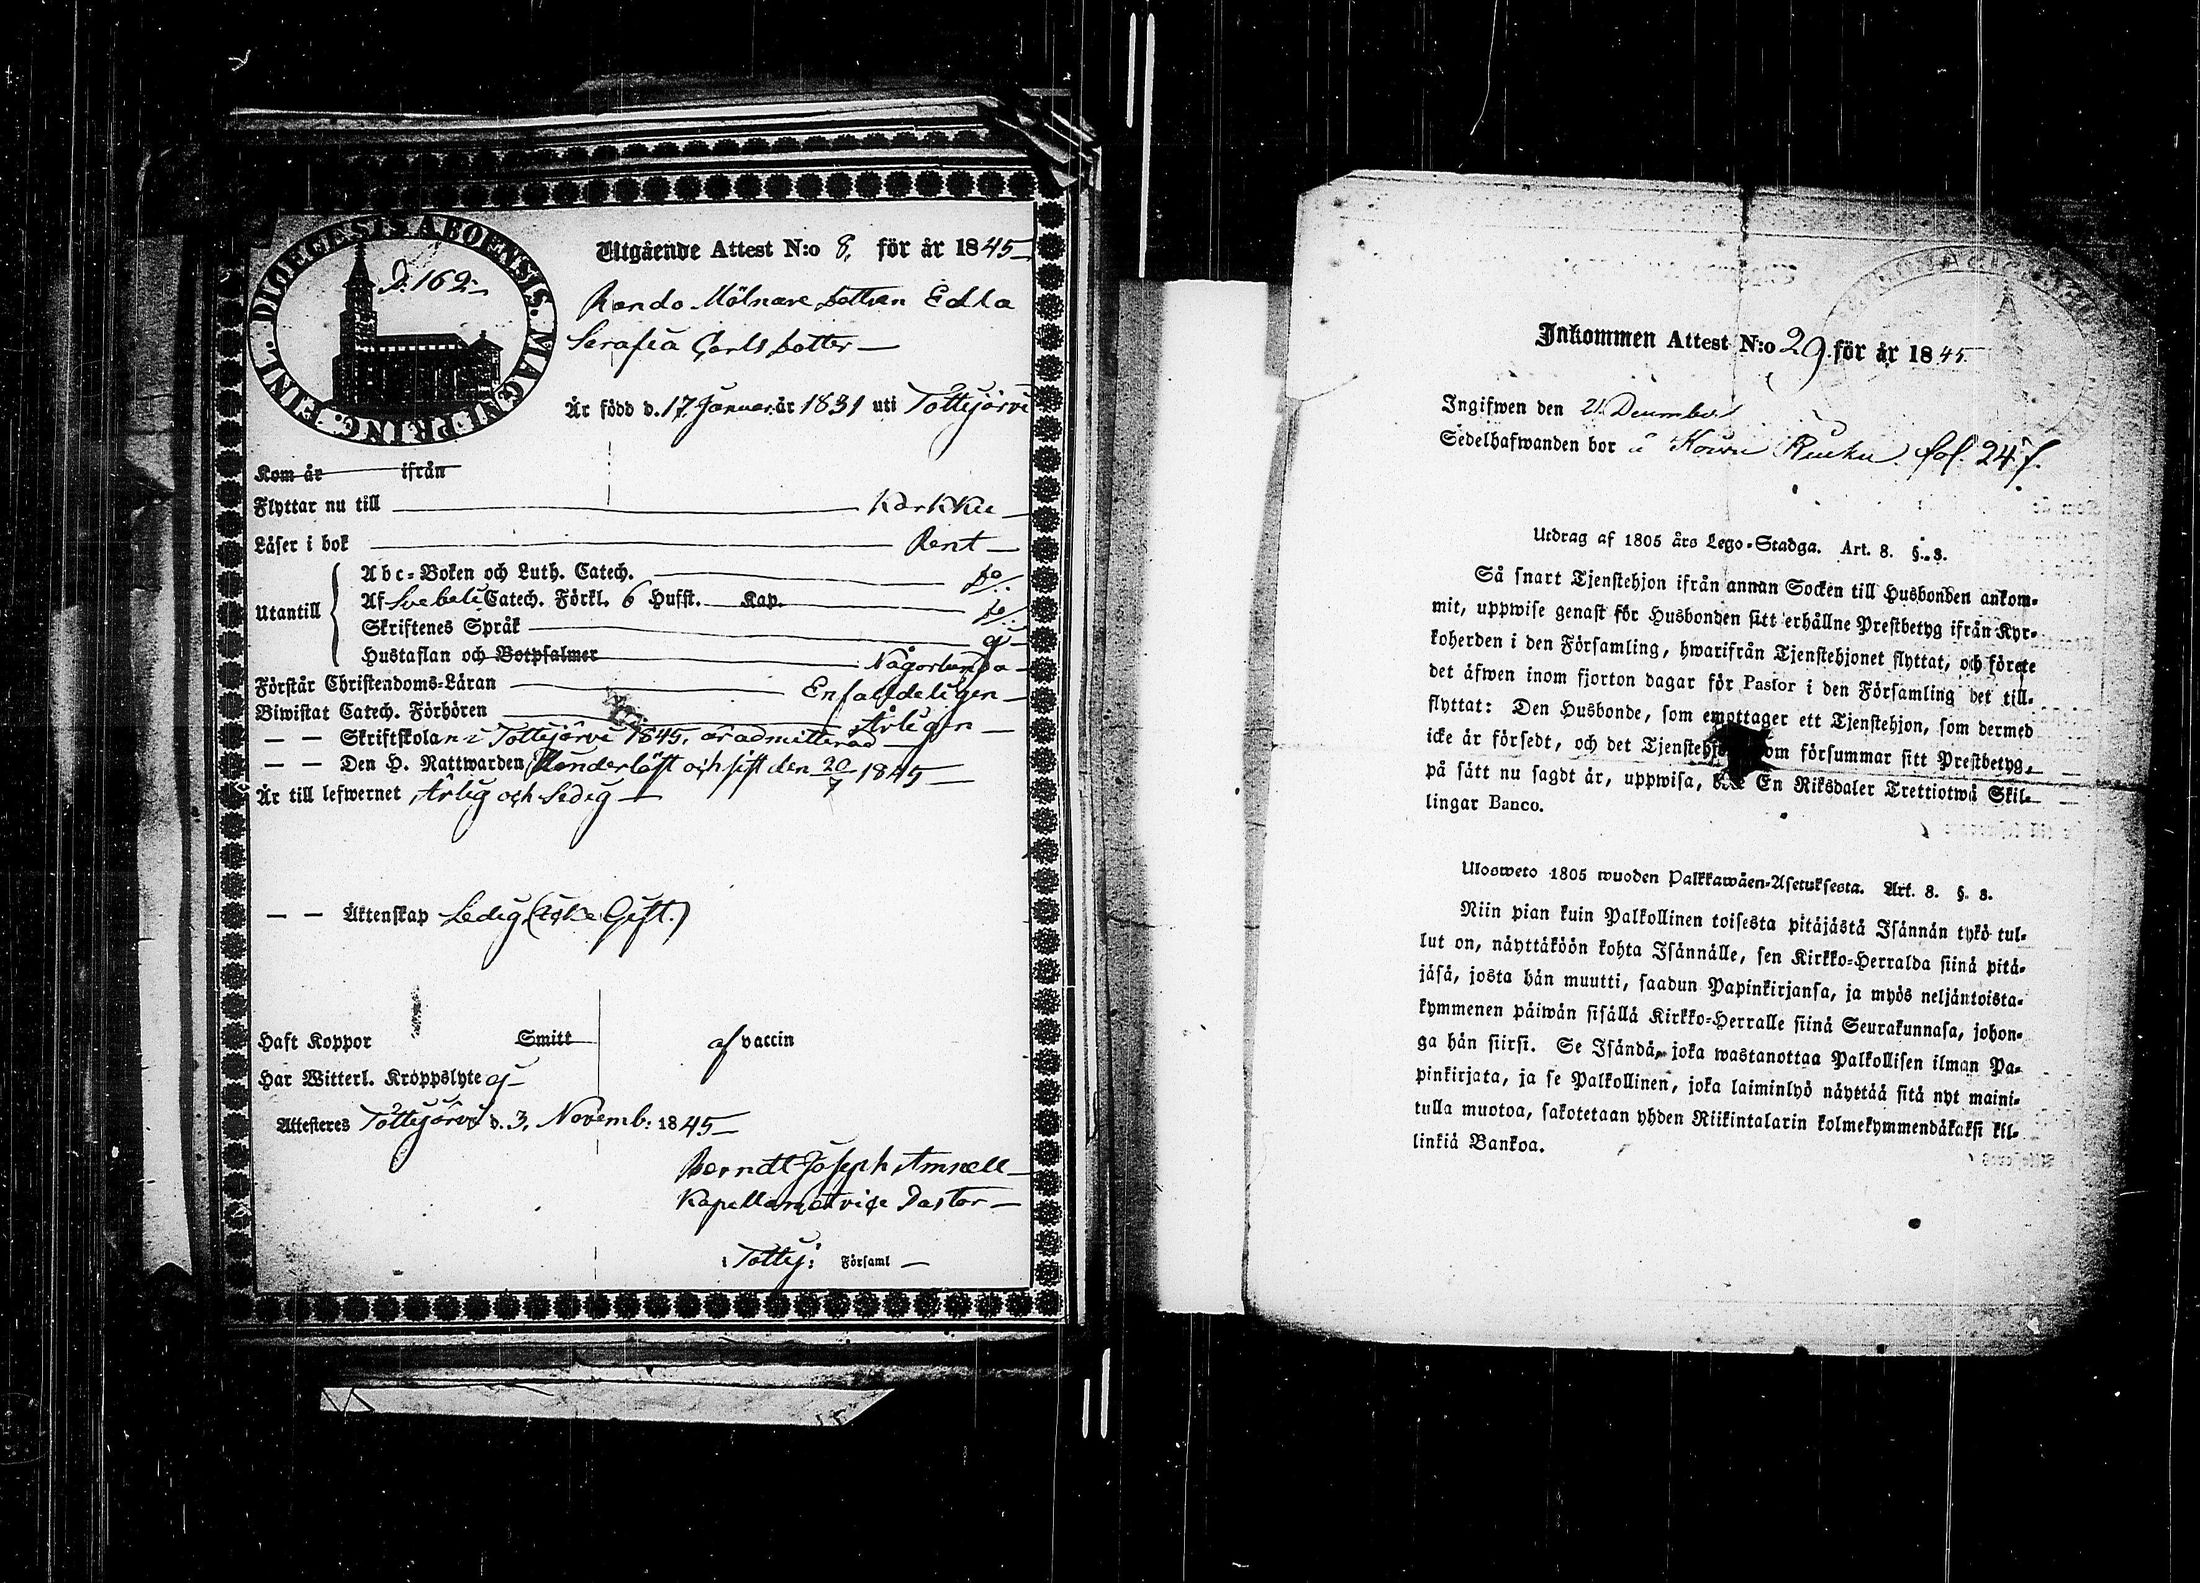 DIOECESIS ABOENSIS. MAGNI PRINC. FINL.
P. 162.
Utgående Attest N:o 8. för år 1845
Rando Mölnare dottren Edla
Serafia Carls dotter
Är född d. 17. Januar. år 1831 uti Tottijärvi
Kom år ifrån
Flyttar nu till Karkku
Läser i bok Rent
Utantill
Abc-Boken och Luth. Catech. do
Af Svebeli Catech. Förkl. 6 Hufst. Kap. do
Skriftenes Språk ej
Hustaflan och Botpsalmer Någorlunda
Förstår Christendoms-Läran Enfaldeligen
Biwistat Catech. Förhören Årligen
— — Skriftskolan i Tottijärvi 1845, är admitterad
— — Den H. Nattwarden Oanderlåst och sist den 20/7 1845
Är till lefwernet Ärlig och Sedig
— — Äktenskap Ledig (icke Gift.)
Haft Koppor Smitt af vaccin
Har Witterl. Kroppslyte ej
Attesteres Tottijärvi d. 3. Novemb: 1845
Berndt Joseph Amnell
Kapellan o tvige Pastor
i Tottij: Församl
Inkommen Attest N:o 29 för år 1845
Ingifwen den 21 December
Sedelhafwanden bor å Kowru Ruuku fol. 247.
Utdrag af 1805 års Lego-Stadga. Art. 8. §. 8.
Så snart Tjenstehjon ifrån annan Socken till Husbonden ankom-
mit, uppwise genast för Husbonden sitt erhållne Prestbetyg ifrån Kyr-
koherden i den Församling, hwarifrån Tjenstehjonet flyttat, och förete
det äfwen inom fjorton dagar för Pastor i den Församling det till-
flyttat: Den Husbonde, som emottager ett Tjenstehjon, som dermed
icke är försedt, och det Tjenstehjon som försummar sitt Prestbetyg,
på sätt nu sagdt är, uppwisa, En Riksdaler Trettiotwå Skil-
lingar Banco.
Ulosweto 1805 wuoden Palkkawäen-Asetuksesta. Art. 8. §. 8.
Niin pian kuin Palkollinen toisesta pitäjästä Isännän tykö tul-
lut on, näyttäköön kohta Isännälle, sen Kirkko-Herralda siinä pitä-
jäsä, josta hän muutti, saadun Papinkirjansa, ja myös neljäntoista-
kymmenen päiwän sisällä Kirkko-Herralle siinä Seurakunnasa, johon-
ga hän siirsi. Se Isändä, joka wastanottaa Palkollisen ilman Pa-
pinkirjata, ja se Palkollinen, joka laiminlyö näyttää sitä nyt maini-
tulla muotoa, sakotetaan yhden Riikintalarin kolmekymmendäkaksi kil-
linkiä Bankoa.